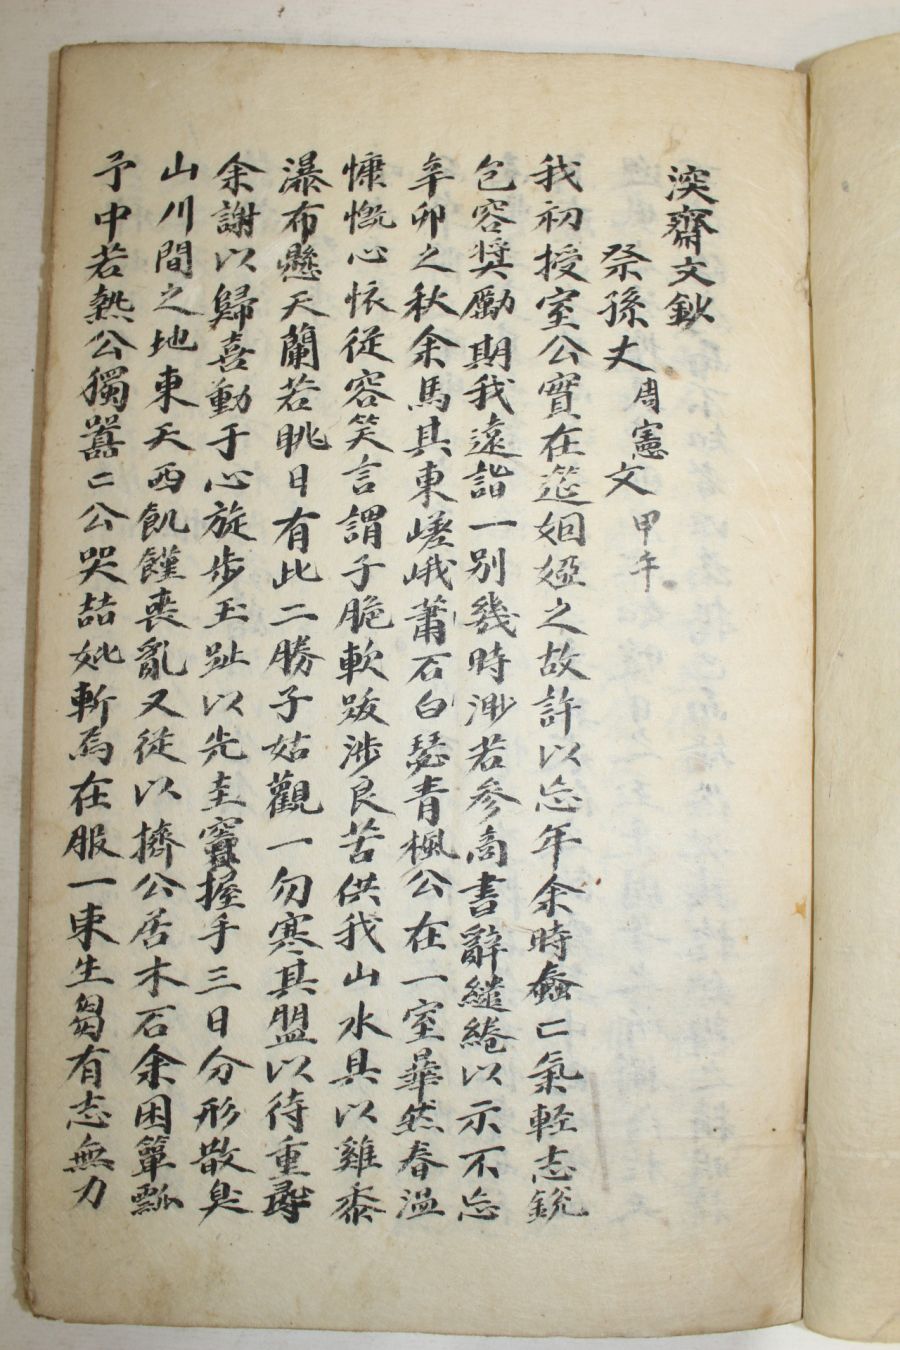 渓齋文鈔
祭孫丈周憲文甲午
我初授室公實在筵姻婭之故許以忘年余時蠢〻氣輕志銳
包容奬勵期我遠詣一別幾時渺若參商書辭繾綣以示不忘
辛卯之秋余馬其東嵯峨蕭石白瑟青楓公在一室曄然春溫
慷慨心懷從容笑言謂子脆軟跋涉良苦供我山水具以雞黍
瀑布懸天蘭若眺日有此二勝子姑觀一勿寒其盟以待重尋
余謝以歸喜動于心旋步玉趾以先圭竇握手三日分形散臭
山川間之地東天西飢饉喪亂又從以擠公居木石余困簞瓢
予中若熱公獨囂〻公哭喆妣斬焉在服一束生芻有志無力